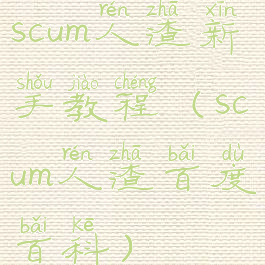 rén zhā xīn
scum人渣新
shǒu jiào chéng
手教程（sc
rén zhā bǎi dù
um人渣百度
bǎi kē
百科）